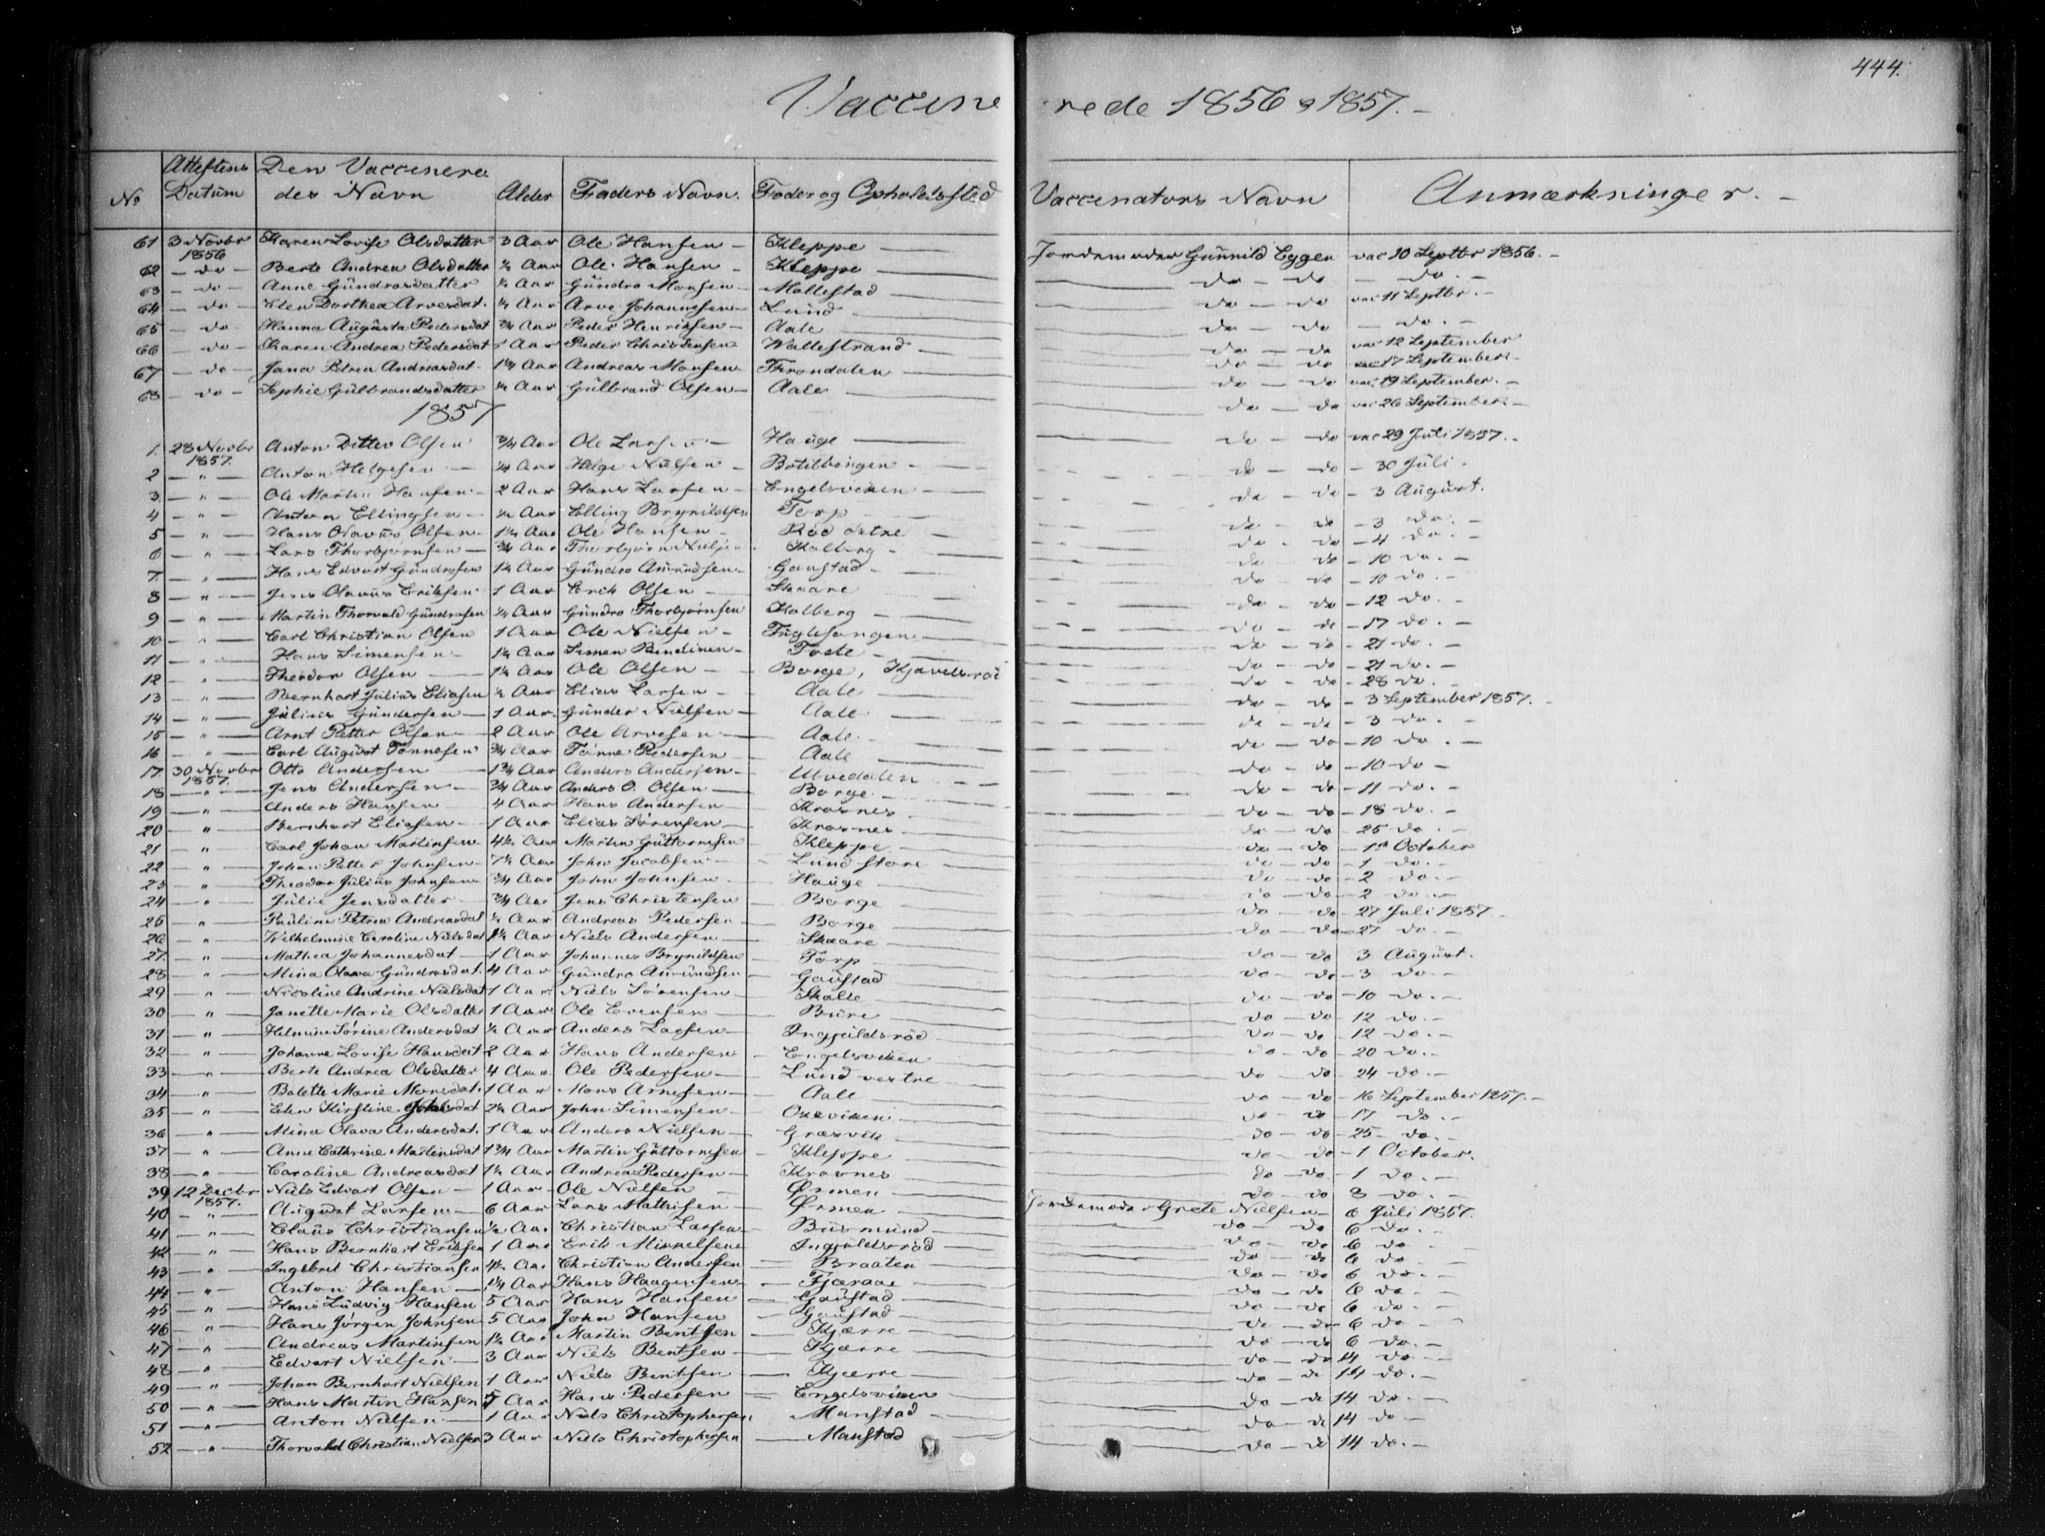 444.
Vaccenerede 1856 & 1857. -
No Attestens Datum Den Vacceneredes Navn Alder Faders Navn. Føde og Opholdssted Vaccinators Navn Anmærkninger. -
61 3 Novbr 1856 Karen Lovise Olsdatter 3 Aar Ole Hansen - Kleppe Jordemoder Gunnild Eggen vac 10 Septbr 1856. -
62 - do - Berte Andrea Olsdatter ½ Aar Ole Hansen - Kleppe do - do - do. -
63 - do - Anne Gündrosdatter ½ Aar Gündro Monsen - Mallestad do - do vac 11 Septbr. -
64 - do Elen Dorthea Arvesdat. ½ Aar Arve Johannesen - Lund do - do - do. -
65 - do Hanna Augusta Pedersdat ¾ Aar Peder Henriksen - Aale do - do vac 12 September
66 - do - Karen Andrea Pedersdat Aar Peder Christensen Wallestrand do - do vac 17 September -
67 - do - Jana Petrea Andreasdat. 1¾ Aar Andreas Monsen - Trondalen do - do vac 19 September. -
68 - do - Sophie Gülbrandsdatter ½ Aar Gülbrand Olsen - Aale do - do vac 26 September. -
1857
1. 28 Novbr 1857. Anton Ditlev Olsen ¾ Aar Ole Larsen - Hauge do - do vac 29 Juli 1857. -
2 - " - Anton Helgesen - ¼ Aar Helge Nielsen - Botilbingen do - do - 30 Juli.
3 - " - Ole Martin Hansen - 2 Aar Hans Larsen - Engelsviken do - do - 3 August.
4 - " - Anton Ellingsen - ½ Aar Elling Brynildsen Torp do - do - 3 do. -
5 - " - Hans Olavus Olsen - 1½ Aar Ole Hansen - Röd østre do - do - 4 do. -
6 - " - Lars Thorbjørnsen - ¾ Aar Thorbjørn Kolberg - do - do - 10 do. -
7. - " - Hans Edvart Gündrosen 1¼ Aar Gündro Amundsen - Gaustad - do - do - 10 do. -
8 - " - Jens Olavus Eriksen 1 Aar Erik Olsen - Skaare do - do - 12 do. -
9 - " - Martin Thorvald Gündrosen ½ Aar Gündro Thorbjørnsen Kolberg do - do - 17 do. -
10 - " - Carl Christian Olsen 1 Aar Ole Nielsen - Fuglesangen do - do - 21 do. -
11 - " - Hans Simensen - 1¼ Aar Simen - Tofte do - do - 21 do. -
12 - " - Theodor Olsen 1¼ Aar Ole Olsen - Borge, Kjøvelsröd do - do - 28 do. -
13 - " - Bernhart Julius Eliasen ½ Aar Elias Larsen - Aale do - do - 3 September 1857. -
14 - " - Julius Gündersen - 1 Aar. Günder Nielsen - Aale do - do - 3 do. -
15 - " - Arnt Petter Olsen - 2 Aar Ole Arvesen - Aale. do - do - 10 do. -
16 - " - Carl August Tønnesen ¾ Aar Tønnes Pedersen Aale do - do - 10 do -
17 30 Novbr 1857. Otto Andersen - 1¾ Aar Anders Andersen - Utvedalen do - do - 11 do. -
18 - " - Jens Andersen - ¾ Aar Anders O. Olsen Borge do - do - 18 do. -
19 - " - Anders Hansen 4 Aar Hans Andersen - Krosnes. do - do - 25 do. -
20 - " - Bernhart Eliasen - 1 Aar Elias Sørensen - Krosnes do - do - 1st October
21 - " - Carl Johan Martinsen - 4½ Aar Martin Guttormsen Kleppe do - do - 1 do. -
22 - " - Johan Petter Johnsen - 7½ Aar John Jacobsen - Lund store do - do - 2 do. -
23 - " - Theodor Julius Johnsen ¾ Aar John Johnsen - Hauge do - do - 2 do. -
24 - " - Julie Jensdatter ¾ Aar Jens Christensen - Borge do - do - 27 Juli 1857.
25 - " - Pauline Petrea Andreasdat ½ Aar Andreas Pedersen - Borge do - do - 27 do. -
26 - " - Wilhelmine Caroline Nielsdat 1½ Aar Niels Andersen - Skaare do - do 3 August.
27. - " - Mathea Johannesdat - 1 Aar Johannes Brynildsen Torp do - do - 3 do. -
28 - " - Mina Olava Gündrosdat. 4 Aar Gündro Amundsen Gaustad do - do - 10 do. -
29 - " - Nicoline Andrine Nielsdat 1 Aar Niels Sørensen - Skalle do - do - 12 do. -
30 - " - Janette Marie Olsdatter 1 Aar Ole Evensen - Büre do - do - 12 do. -
31 - " - Helmine Sørine Andersdat ½ Aar Anders Larsen - Ingjuldsröd do - do - 20 do. -
32 - " - Johanne Lovise Hansdat 2 Aar Hans Andersen - Engelsviken do - do - 24 do. -
33 - " - Berte Andrea Olsdatter 4 Aar Ole Pedersen - Lund vestre do - do - 16 September 1857. -
34 - " - Bolette Marie Monsdat. 1 Aar Mons Arnesen - Aale do - do - 17 do. -
35 - " - Elen Kirstine Johnsdat 2½ Aar John Simensen - Oxeviken do - do - 25 - do. -
36 - " - Mina Olava Andersdat. 1 Aar Anders Nielsen - Græsvik do - do - 1 October.
37 - " - Anne Cathrine Martinsdat 1¾ Aar Martin Guttormsen Kleppe do - do - 1 do. -
38 - " - Caroline Andreasdat 1½ Aar Andreas Pedersen - Krosnes do - do 8 do. -
39 12 Decbr 1857. Niels Edvart Olsen - 1 Aar - Ole Nielsen Ørmen Jordemoder Grete Nielsen - 6 Juli 1857.
40 - " - August Larsen - 6 Aar Lars Mathisen - Ørmen do - do 6 do. -
41 - " - Claus Christiansen ½ Aar Christian Larsen - Büsmund do - do 6 do -
42 - " - Hans Bernhart Eriksen 1 Aar Erik Mikkelsen Ingjuldsröd do - do 6 do -
43 - " - Ingebret Christiansen 4½ Aar Christian Andersen - Braaten do - do 6 do. -
44 - " - Anton Hansen - 1¼ Aar Hans Haagensen - Fjæraae do - do 6 do -
45 - " - Hans Ludvig Hansen 5 Aar Hans Hansen - Gaustad do - do 6 do. -
46 - " - Hans Jørgen Johnsen 5 Aar John Hansen - Gaustad do - do - 6 do -
47 - " - Andreas Martinsen 1½ Aar Martin Bentsen - Kjærre do - do 6 do. -
48 - " - Edvart Nielsen - 3 Aar - Niels Bentsen - Kjærre do - do 14 do. -
49 - " - Johan Bernhart Nielsen 1 Aar Niels Bentsen - Kjærre do - do 14 do. -
50 - " - Hans Martin Hansen 5 Aar Hans Pedersen - Engelsviken do - do 14 do. -
51 - " - Anton Nielsen 1 Aar - Niels Christophersen - Manstad do - do 14 do -
52 - " - Thorvald Christian Nielsen 3 Aar Niels Christophersen - Manstad do - do 14 do. -